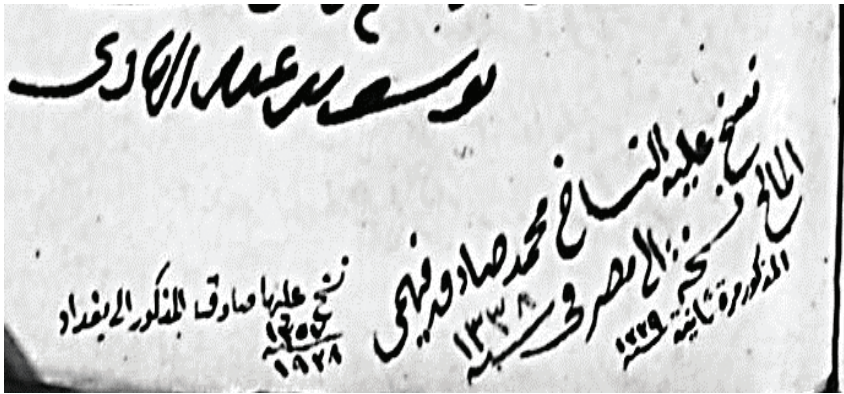 يوسف بن عبد الهادى
نسخ عليه الناسخ محمد صادق فهمى
المالح نسخة الى مصر فى سنة ١٣٣٨
المذكور مرة ثانية سنة ١٣٣٩
نسخ عليها صادق المذكور الى بغداد
١٣٥٧
١٩٣٨